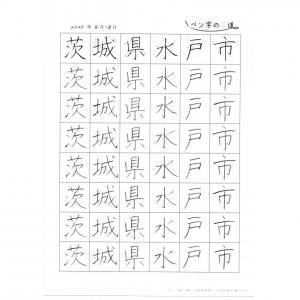 年8月18日
ペン字の 道
茨城県水戸市
茨城県水戸市
茨城県水戸市
茨城県水戸市
茨城県水戸市
茨城県水戸市
茨城県水戸市
茨城県水戸市